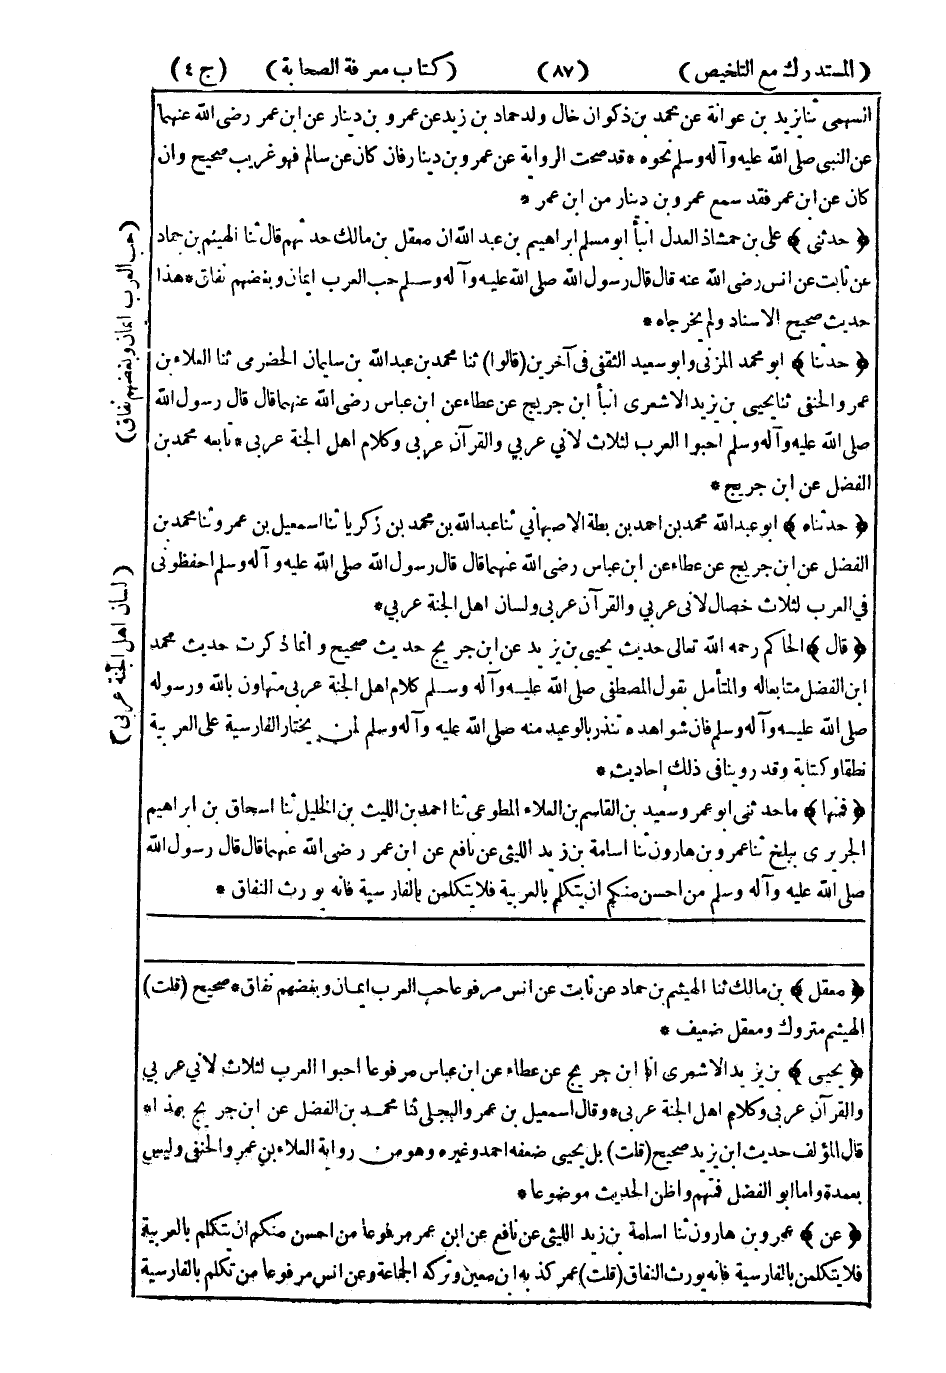 (المستدرك مع التلخيص) (٨٧) (كتاب معرفة الصحابة) (ج ٤)
السهمى ثنا يزيد بن عوانة عن محمد بن ذكوان خال ولد حماد بن زيد عن عمرو بن دينار عن ابن عمر رضى الله عنهما
عن النبى صلى الله عليه وآله وسلم نحوه * قد صحت الرواية عن عمرو بن دينار فان كان عن سالم فهو غريب صحيح وان
كان عن ابن عمر فقد سمع عمرو بن دينار من ابن عمر *
﴿ حدثنى ﴾ على بن حمشاذ العدل انبأ ابو مسلم ابراهيم بن عبد الله ان معقل بن مالك حدثهم قال ثنا الهيثم بن حماد
عن ثابت عن انس رضى الله عنه قال قال رسول الله صلى الله عليه وآله وسلم حب العرب ايمان وبغضهم نفاق * هذا
حديث صحيح الاسناد ولم يخرجاه *
﴿ حدثنا ﴾ ابو محمد المزنى وابو سعيد الثقفى فى آخرين (قالوا) ثنا محمد بن عبد الله بن سليمان الحضرمى ثنا العلاء بن
عمرو الحنفى ثنا يحيى بن يزيد الاشعرى انبأ ابن جريج عن عطاء عن ابن عباس رضى الله عنهما قال قال رسول الله
صلى الله عليه وآله وسلم احبوا العرب لثلاث لأني عربي والقرآن عربى وكلام اهل الجنة عربى * تابعه محمد بن
الفضل عن ابن جريج *
﴿ حدثناه ﴾ ابو عبد الله محمد بن احمد بن بطة الاصبهاني ثنا عبد الله بن محمد بن زكريا ثنا اسمعيل بن عمرو ثنا محمد بن
الفضل عن ابن جريج عن عطاء عن ابن عباس رضى الله عنهما قال قال رسول الله صلى الله عليه وآله وسلم احفظونى
في العرب لثلاث خصال لانى عربي والقرآن عربى ولسان اهل الجنة عربي *
﴿ قال ﴾ الحاكم رحمه الله تعالى حديث يحيى بن يزيد عن ابن جريج حديث صحيح وانما ذكرت حديث محمد
ابن الفضل متابعا له والمتأمل بقول المصطفى صلى الله عليه وآله وسلم كلام اهل الجنة عربى متهاون بالله ورسوله
صلى الله عليه وآله وسلم فان شواهده تنذر بالوعيد منه صلى الله عليه وآله وسلم لمن يختار الفارسية على العربية
نطقا وكتابة وقد روينا فى ذلك احاديث *
﴿ فمنها ﴾ ما حدثنى ابو عمرو سعيد بن القاسم بن العلاء المطوعى ثنا احمد بن الليث بن الخليل ثنا اسحاق بن ابراهيم
الجريرى ببلخ ثنا عمرو بن هارون ثنا اسامة بن زيد الليثى عن نافع عن ابن عمر رضى الله عنهما قال قال رسول الله
صلى الله عليه وآله وسلم من احسن منكم ان يتكلم بالعربية فلا يتكلمن بالفارسية فانه يورث النفاق *
﴿ معقل ﴾ بن مالك ثنا الهيثم بن حماد عن ثابت عن انس مرفوعا حب العرب ايمان وبغضهم نفاق * صحيح (قلت)
الهيثم متروك ومعقل ضعيف *
﴿ يحيى ﴾ بن يزيد الاشعرى انا ابن جريج عن عطاء عن ابن عباس مرفوعا احبوا العرب لثلاث لأني عربي
والقرآن عربى وكلام اهل الجنة عربى * وقال اسمعيل بن عمرو البجلى ثنا محمد بن الفضل عن ابن جريج بهذا *
قال المؤلف حديث ابن يزيد صحيح (قلت) بل يحيى ضعفه احمد وغيره وهو من رواية العلاء بن عمرو الحنفى وليس
بعمدة واما ابو الفضل فمتهم واظن الحديث موضوعا *
﴿ عن ﴾ عمرو بن هارون ثنا اسامة بن زيد الليثى عن نافع عن ابن عمر مرفوعا من احسن منكم ان يتكلم بالعربية
فلا يتكلمن بالفارسية فانه يورث النفاق (قلت) عمر كذبه ابن معين وتركه الجماعة وعن انس مرفوعا من تكلم بالفارسية
(حب العرب ايمان وبغضهم نفاق)
(لسان اهل الجنة عربى)